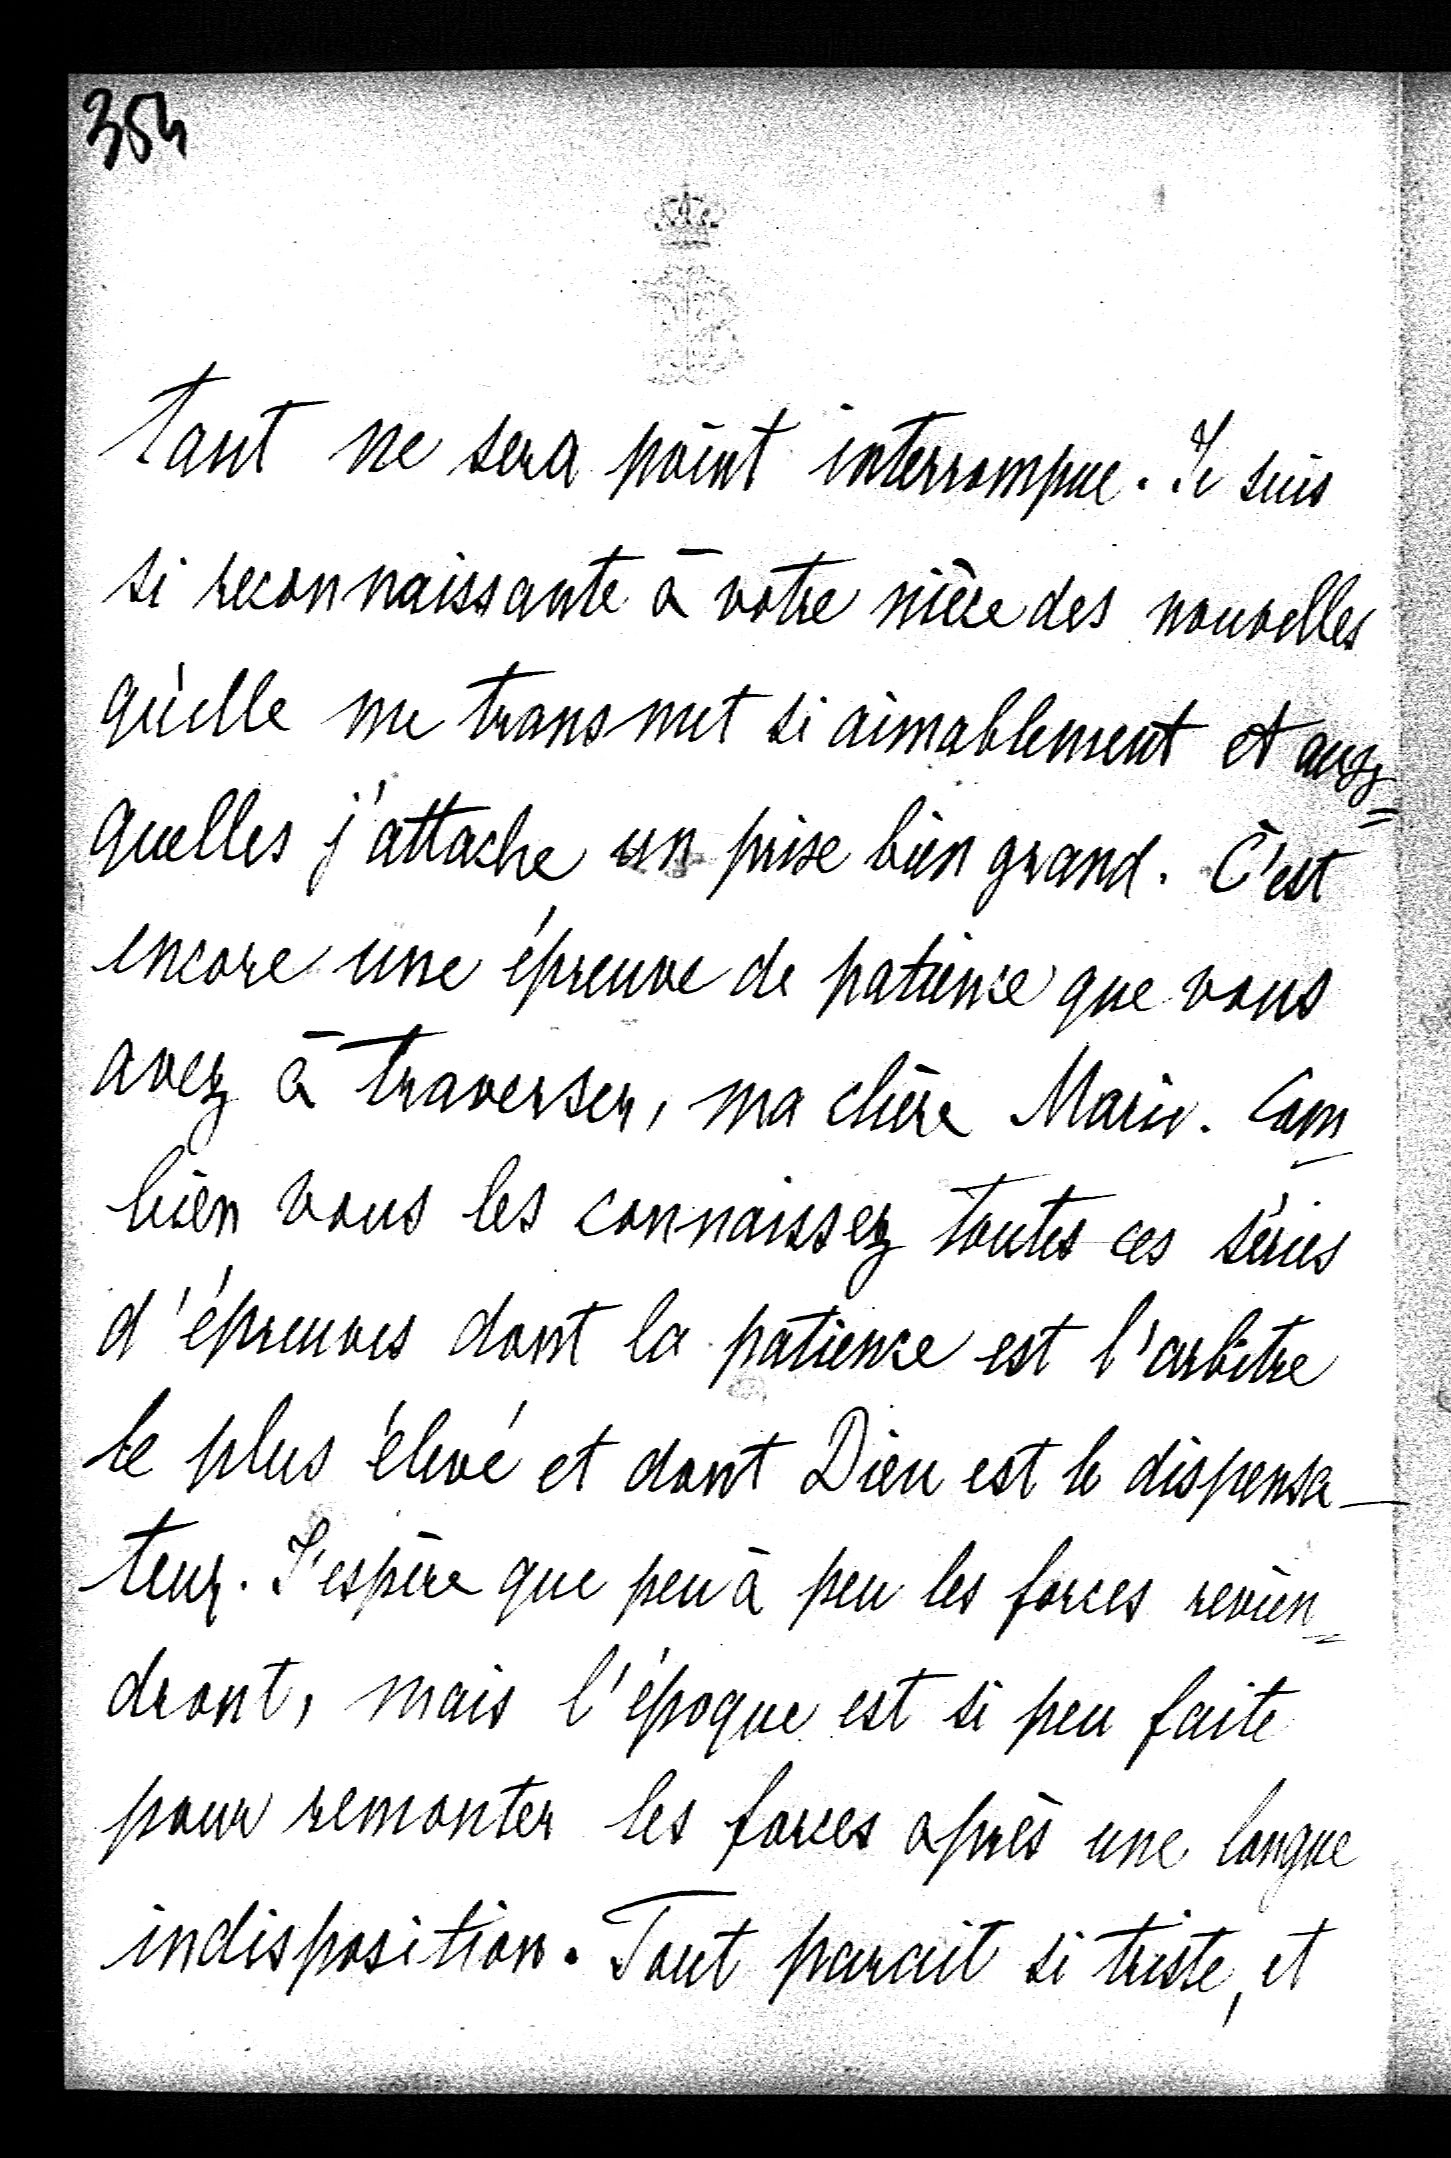 354
tant ne sera point interrompue. Je suis
si reconnaissante à votre nièce des nouvelles
qu'elle me transmet si aimablement et aux=
quelles j'attache un prise bien grand. C'est
encore une épreuve de patience que vous
avez à traverser, ma chère Marie. Com_
bien vous les connaissez toutes ces séries
d'épreuves dont la patience est l'arbitre
le plus élevé et dont Dieu est le dispensa—
teur. J'espère que peu à peu les forces revien=
dront, mais l'époque est si peu faite
pour remonter les forces après une longue
indisposition. Tout parait si triste, et